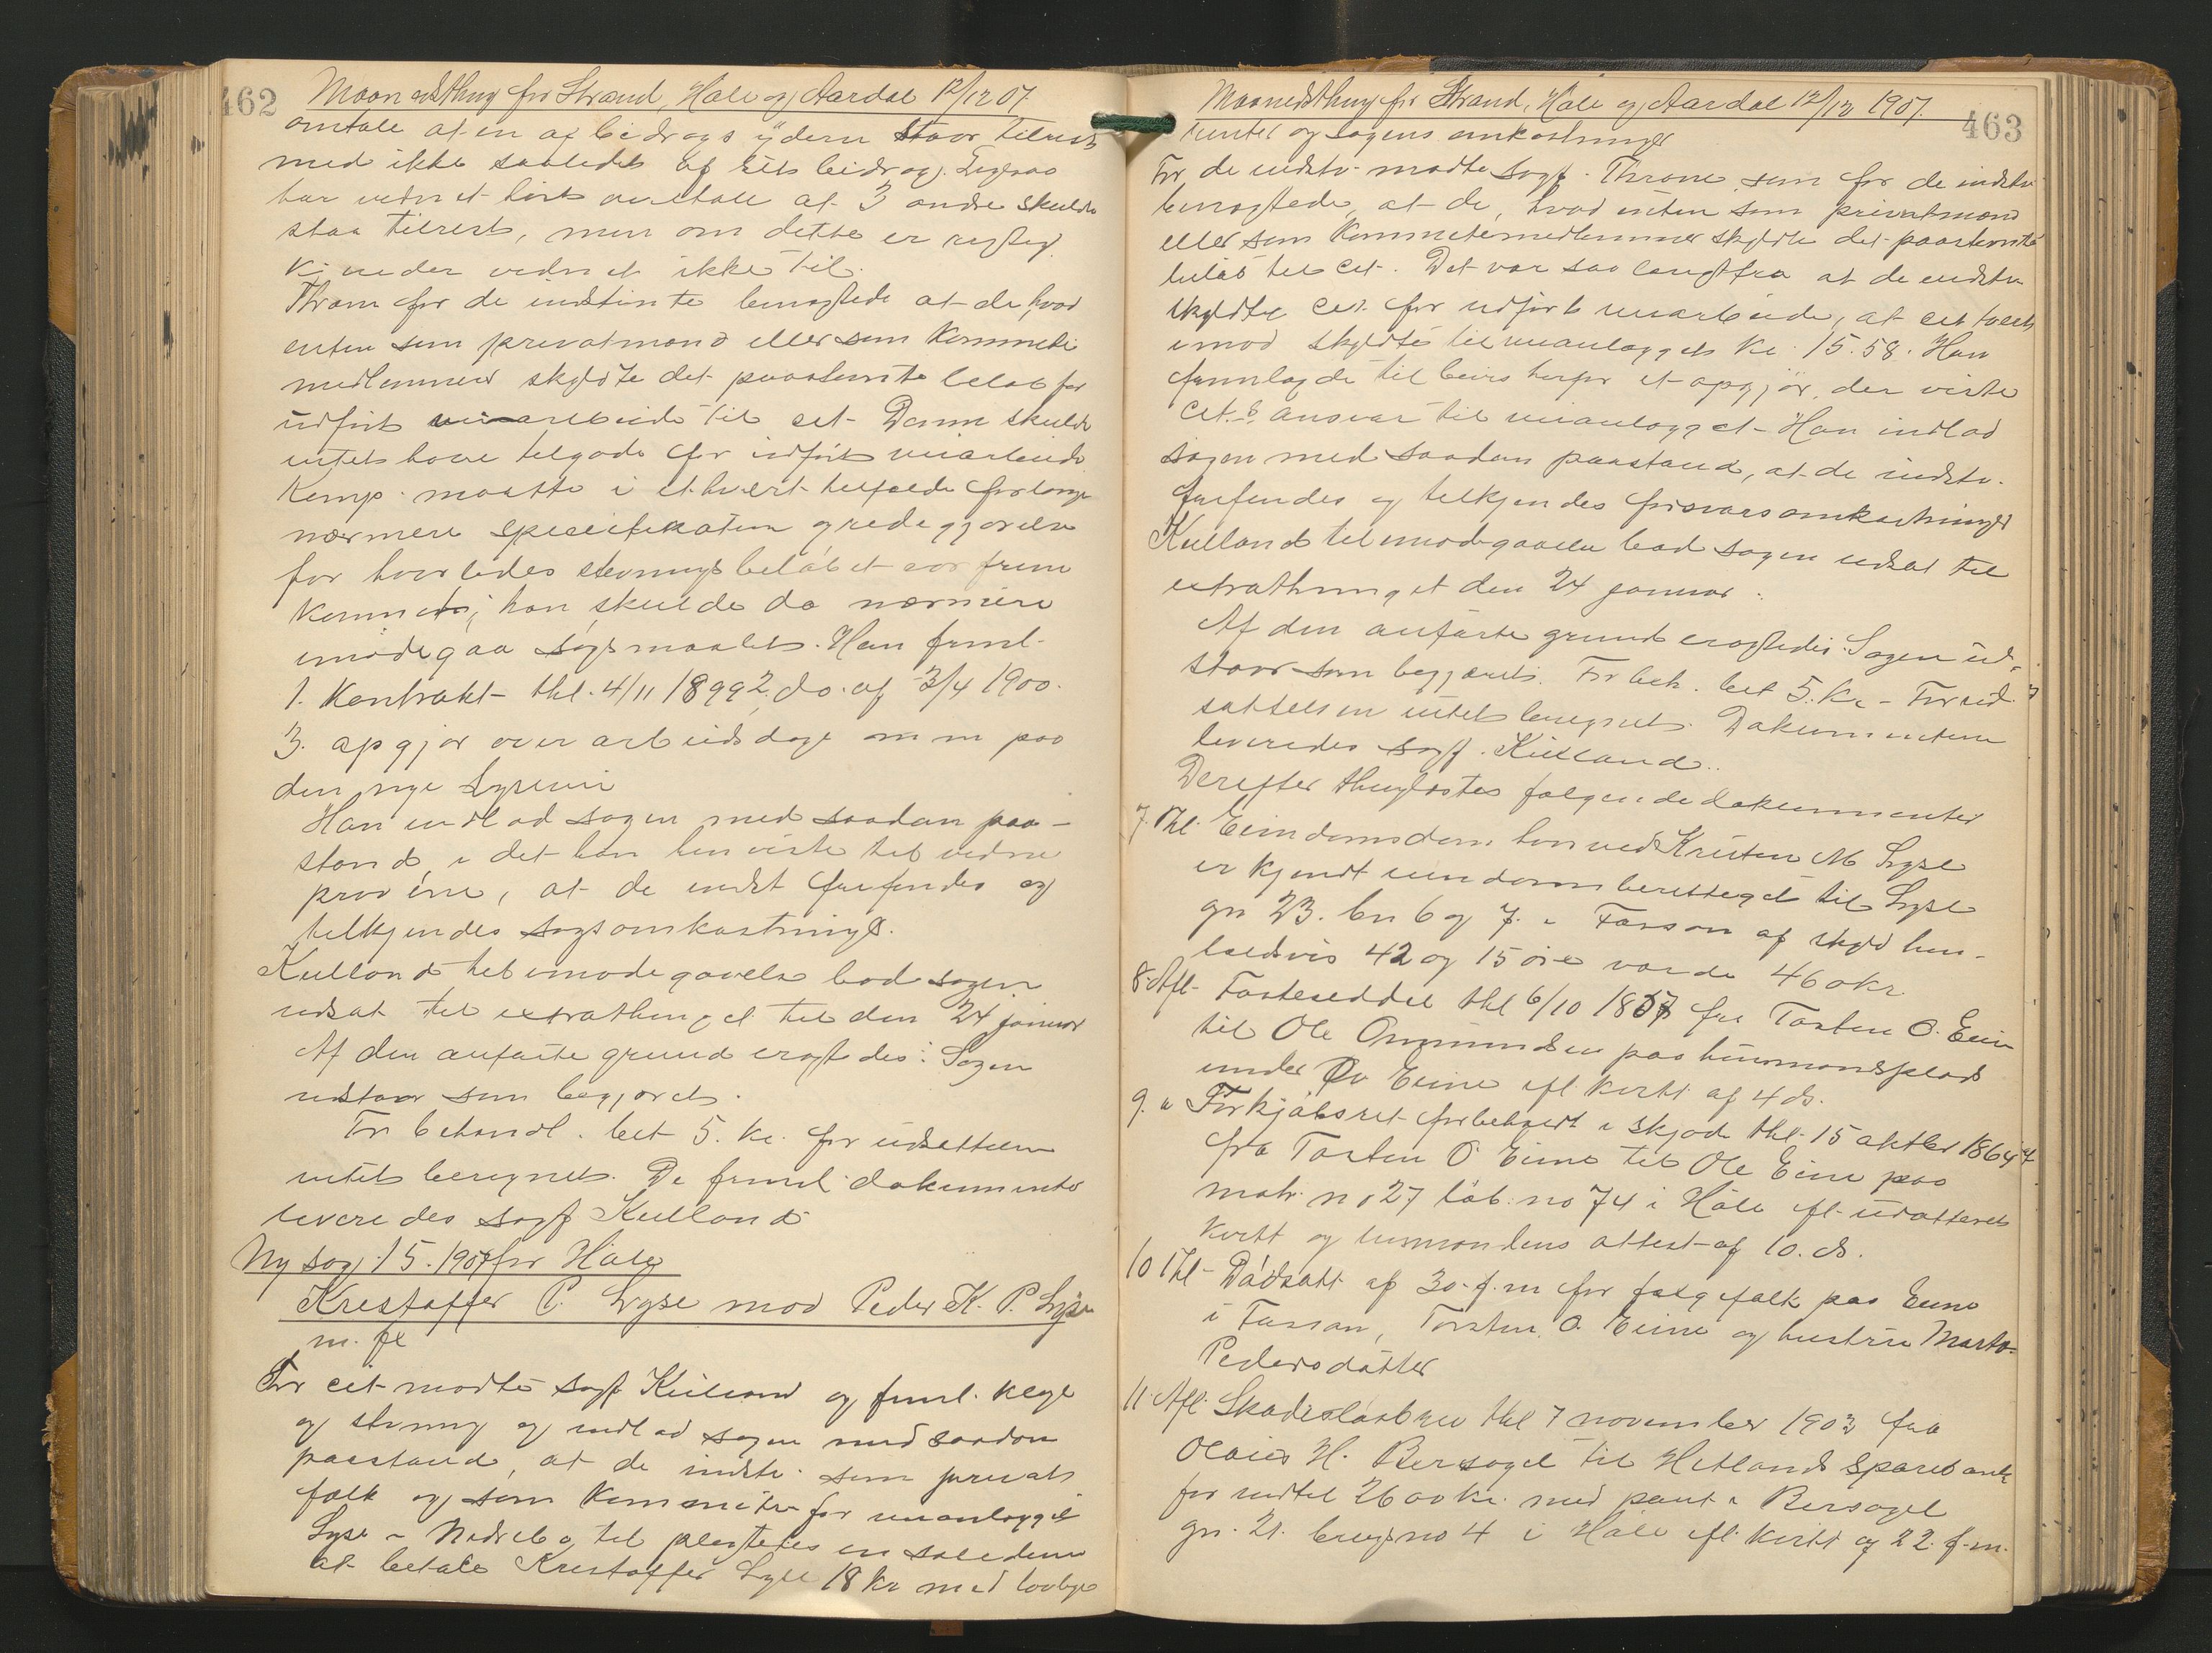 462
Maanedsthing for Strand, Høle og Aardal 12/12 07
omtale at en af bidragsyderne staar tilrest
med ikke saaledes af sit bidrag. Ligesaa
har vidnet hørt omtale at 3 andre skulde
staa tilrest, men om dette er rigtigt
kjender vidnet ikke til.
Thrane for de indstevnte benegtede at de, hvad
enten som privatmænd eller som Kommite
medlemmer skyldte det paastevnte beløb for
udført veiarbeide til cit. Denne skulde
intet have tilgode for udført veiarbeide
Kemp maatte i ethvert tilfælde forlange
nærmere specifikation og redegjørelse
for hvorledes stevningsbeløbet var frem
kommet; han skulde da nærmere
imødegaa søgsmaalet. Han freml.
1. Kontrakt thl. 4/11 1899 2, do. af 3/4 1900.
3. opgjør over arbeidsdage m m paa
den nye Lysevei
Han indlod sagen med saadan paa-
stand, i det han henviste til vidne
prøverne, at de indst frifindes og
tilkjendes sagsomkostninger.
Kielland til imødegaaelse bad sagen
udsat til extrathinget til den 24 januar
Af den anførte grund eragtedes: Sagen
udstaar som begjæret.
For behandl. bet 5. kr. for udsættelsen
intet beregnet. De freml. dokumenter
leveredes sagf Kielland
Ny sag 15. 1907 for Høle
Kristoffer P. Lyse mod Peder K. P. Lyse
m. fl
For cit mødte sagf Kielland og freml. klage
og stevning og indlod sagen med saadan
paastand, at de indstv. som privat
folk og som Kommite for veianlægget
Lyse - Nedrebø, til pligtes en solidum
at betale Kristoffer Lyse 18 kr med lovlige
Maanedsthing for Strand, Høle og Aardal 12/12 1907.
463
renter og sagens omkostninger
For de indstv. mødte sagf. Thrane som for de indstv
benegtede, at de, hvad enten som privatmænd
eller som Kommitemedlemmer skyldte det paastevnte
beløb til cit. Det var saa langt fra at de indstv
skyldte cit. for udført veiarbeide, at cit tvert
imod skyldte til veianlægget kr. 15.58. Han
fremlagde til bevis herfor et opgjør, der viste
cit.s ansvar til veianlægget. Han indlod
sagen med saadan paastand, at de indstv.
frifindes og tilkjendes forsvarsomkostninger
Kielland til imødegaaelse bad sagen udsat til
extrathinget den 24 januar.
Af den anførte grund eragtedes: Sagen ud-
staar som begjæret. For beh. bet 5. kr. - For ud-
sættelsen intet beregnet. Dokumenterne
leveredes sagf. Kielland.
Derefter thinglæstes følgende dokumenter
7. Thl. Eiendomsdom hvorved Kristen M Lyse
er kjendt eiendomsberettiget til Lyse
gn 23. bn 6 og 7. i Fossan af skyld hen-
holdsvis 42 og 15 øre værdi 460 kr.
8. Afl. Fæsteseddel thl 6/10 1857 fra Tosten O. Eiene
til Ole Ommundsen paa husmandsplads
under Øv Eiene efl. kvitt. af 4 ds.
9. " Forkjøbsret forbeholdt i skjøde thl. 15 oktbr 1864
fra Tosten O. Eiene til Ole Eiene paa
matr. no 27 løb. no 74 i Høle efl. udatteret
kvitt og lensmandens attest af 10. ds.
10 Thl Dødsatt af 30. f. m for følgefolk paa Eiene
i Fossan, Torsten O. Eiene og hustru Marta
Pedersdatter
11. Afl. Skadesløsbrev thl 7 november 1903 fra
Olaus H. Bersagel til Hetlands Sparebank
for indtil 2600 kr. med pant i Bersagel
gn. 21. brugsno 4 i Høle efl. kvitt af 22. f. m.